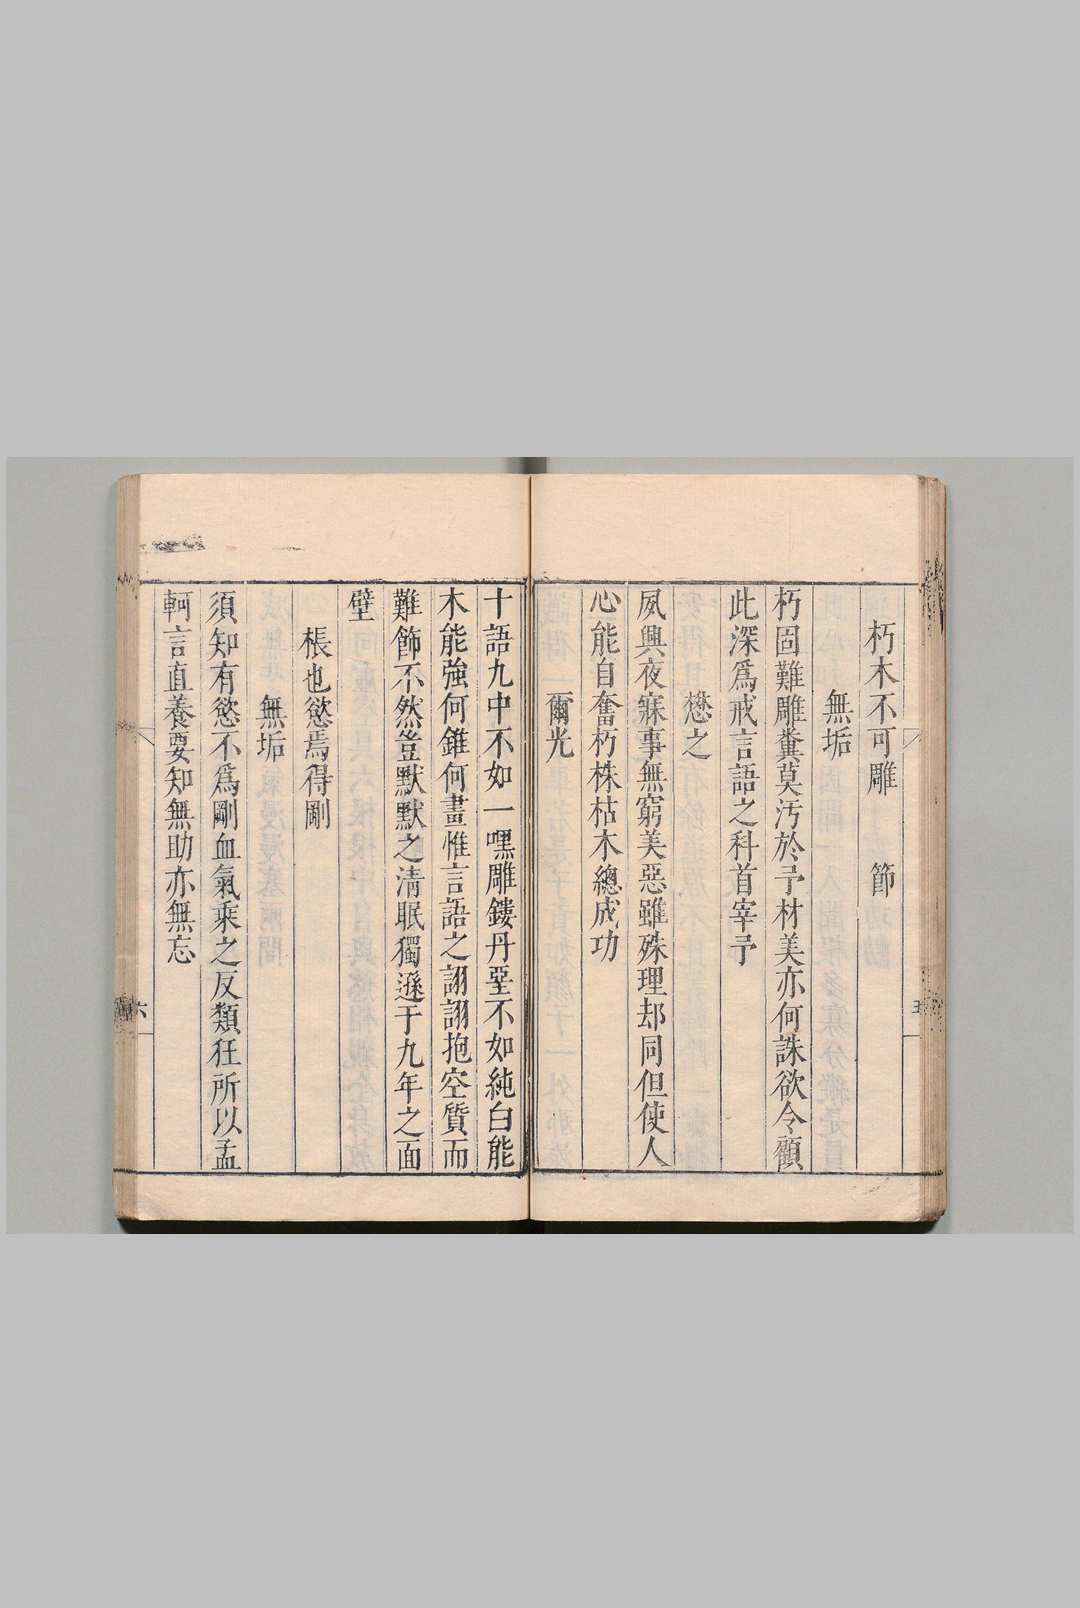 朽木不可雕　節
無垢
朽固難雕糞莫汚於予材美亦何誅欲令顧
此深爲戒言語之科首宰予
懋之
夙興夜寐事無窮美惡雖殊理却同但使人
心能自奮朽株枯木總成功
爾光
十語九中不如一嘿雕鏤丹堊不如純白能
木能強何錐何畫惟言語之詡詡抱空質而
難飾不然豈默默之清眠獨遜于九年之面
壁
棖也慾焉得剛
無垢
須知有慾不爲剛血氣乘之反類狂所以孟
軻言直養要知無助亦無忘
六